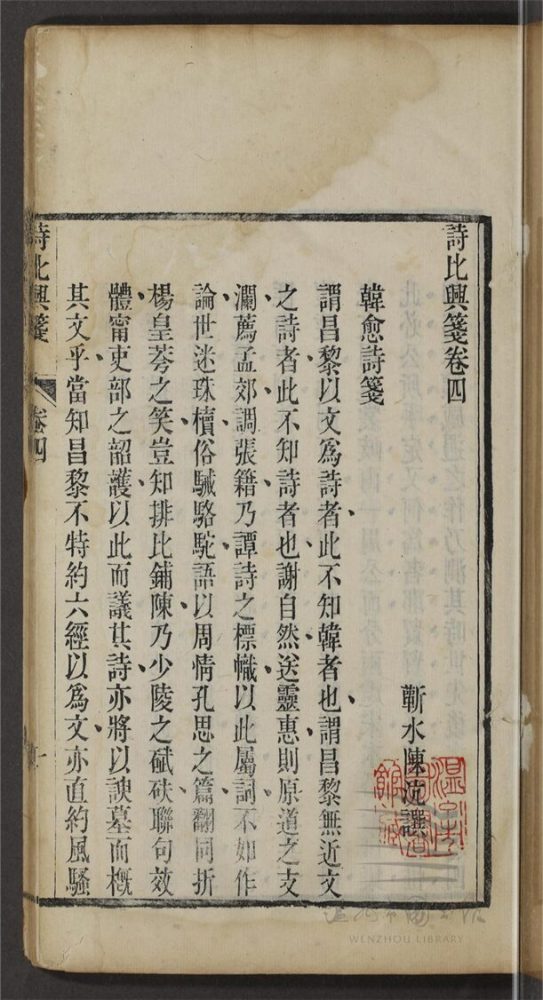 詩比興箋卷四
蘄水陳沆譔
韓愈詩箋
謂昌黎以文爲詩者此不知韓者也謂昌黎無近文
之詩者此不知詩者也謝自然送靈惠則原道之支
瀾薦孟郊調張籍乃譚詩之標幟以此屬詞不如作
論世迷珠櫝俗駴駱駝語以周情孔思之篇翻同折
楊皇荂之笑豈知排比鋪陳乃少陵之碔砆聯句效
體甯吏部之韶頀以此而議其詩亦將以諛墓而槪
其文乎當知昌黎不特約六經以爲文亦直約風騷
詩比興箋
卷四
一
WENZHOU LIBRARY